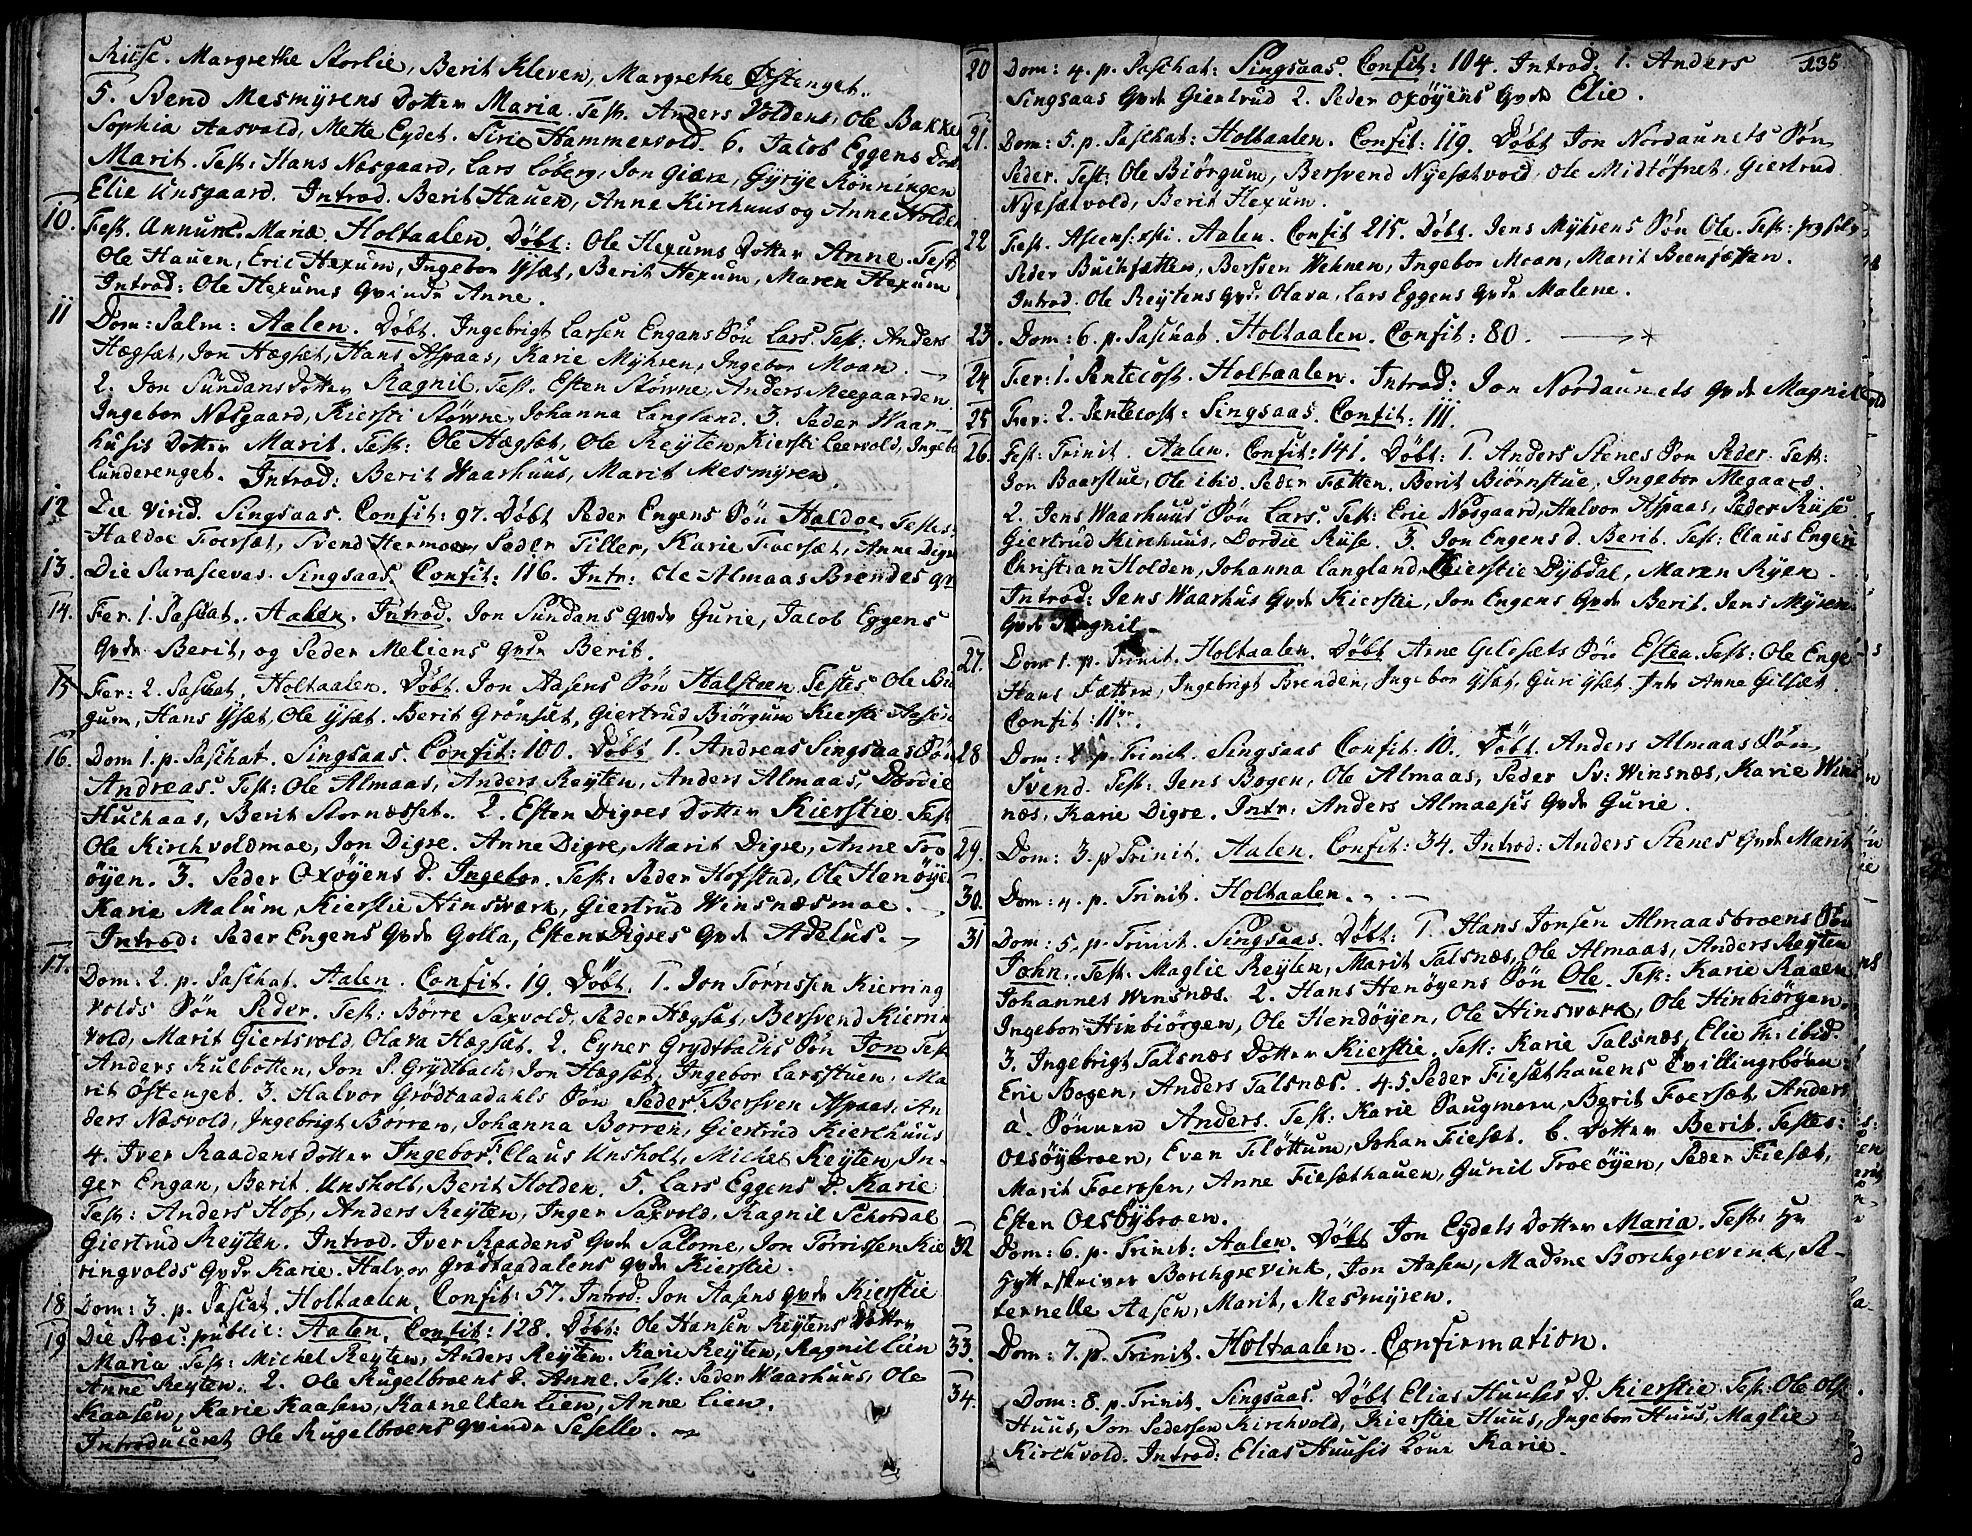 Riise. Margrethe Storlie, Berit Kleven, Margrethe Østenget.
5. Svend Mesmyrens Dotter Maria. Test: Anders Volden, Ole Bakke
Sophia Aasvold, Mette Eydet. Siri Hammervold. 6. Jacob Eggens Dott
Marit. Test: Hans Næsgaard, Lars Löberg, Jon Giære, Gyrye Rönningen
Elie Unsgaard. Introd. Berit Hauen, Anne Kirchuus og Anne Holden
10. Fest. Annunc. Mariæ Holtaalen. Döbt: Ole Hexums Dotter Anne. Test
Ole Hauen, Eric Hexum, Ingebor Ysæt, Berit Hexum, Maren Hexum
Introd: Ole Hexums Qvinde Anne.
11 Dom: Palm: Aalen. Döbt. Ingebrigt Larsen Engans Sön Lars. Test: Anders
Hægsæt, Jon Hægsæt, Hans Aspaas, Karie Myhren, Ingebor Moan.
2. Jon Sundans Dotter Ragnil. Test. Esten Stöwne, Anders Meegaarden
Ingebor Næsgaard, Kiersti Stöwne, Johanna Langland. 3. Peder Waar-
huusis Dotter Marit. Test: Ole Hægsæt, Ole Reyten, Kiersti Leervold, Ingeb
lunderenget. Introd: Berit Waarhuus, Marit Mesmyren.
12 Die Virid. Singsaas. Confit: 97. Döbt Peder Engens Sön Haldoe, Testes:
Haldoe Foersæt, Svend Hermoe, Peder Tiller, Karie Foersæt, Anne Digre
13. Die Parasceves. Singsaas. Confit: 116. Intr: Ole Almaas Brendes qv
14. Fer. 1. Paschat. Aalen. Introd. Jon Sundans Qvde Gurie, Jacob Eggens
Qvde Berit, og Peder Meliens Qvde Berit.
15 Fer: 2. Paschat, Holtaalen. Döbt. Jon Aasens Sön Halsteen Testes Ole Biör
gum, Hans Ysæt, Ole Ysæt. Berit Grönsæt, Giertrud Biörgum Kiersti Aasen
16. Dom 1. p. Paschat. Singsaas. Confit: 100. Döbt 1. Andreas Singsaas Sön
Andreas. Test: Ole Almaas, Anders Reyten, Anders Almaas, Dordie
Huchaas, Berit Stornæsset. 2. Esten Digres Dotter Kierstie. Test
Ole Kirchvoldmoe, Jon Digre. Anne Digre, Marit Digre, Anne Tro
öyen. 3. Peder Oxöyens D. Ingebor. Test: Peder Hofstad, Ole Henöye
Karie Malum, Kierstie Hinswærk, Giertrud Winsnæsmoe.
Introd: Peder Engens Qvde Golla, Esten Digres Qvde Adelus.
17. Dom: 2. p. Paschat. Aalen. Confit. 19. Döbt. 1. Jon Törrissen Kierring
volds Sön Peder. Test: Börre Saxvold, Peder Hægsæt, Bersvend Kierrin
vold, Marit Giertsvold, Olava Hægsæt. 2. Eyner Grydtbachs Sön Jon Test
Anders Kulbotten, Jon P. Grydtbach, Jon Hægsæt, Ingebor Larsstuen, Ma
rit Östenget. 3. Halvor Grödtaadahls Sön Peder. Bersven Aspaas, An
ders Næsvold, Ingebrigt Borren, Johanna Borren, Giertrud Kierchuus
4. Iver Raadens Dotter Ingebor. Claus Unsholt, Michel Reyten, In-
ger Engan, Berit Unsholt, Berit Holden. 5. Lars Eggens D. Karie
Test: Anders Hof, Anders Reyten, Inger Saxvold, Ragnil Schordal
Giertrud Reyten. Introd. Iver Raadens Qvde Salome, Jon Törrissen Kie
ringvolds Qvde Karie. Halvor Grödtaadalens qvde Kierstie.
18 Dom: 3. p. Pascat. Holtaalen. Confit: 57. Introd: Jon Aasens qvde Kierstie
19 Die Præc: public: Aalen. Confit: 128. Döbt: Ole Hansen Reytens Dotter
Maria. Test: Michel Reyten, Anders Reyten. Karie Reyten, Ragnil Lien
Anne Reyten. 2. Ole Rugelbroens D. Anne. Test: Peder Waarhuus, Ole
Kaasen, Karie Kaasen, Karnelken Lien, Anne Lien.
Introduceret Ole Rugelbroens qvinde Peselle.
235
20 Dom: 4. p. Paschat: Singsaas. Confit: 104. Introd. 1. Anders
Singsaas Qvde Giertrud 2. Peder Oxöyens Qvde Elie.
21. Dom: 5. p. Paschat: Holtaalen. Confit: 119. Döbt Jon Nordaunets Sön
Peder. Test: Ole Biörgum, Bersvend Nyesætvold, Ole Midtöfnet, Giertrud
Nyesætvold, Berit Hexum.
22 Fest. Ascens: xsti. Aalen. Confit 215. Döbt. Jens Myhrens Sön Ole. Test:
Peder Buchfætten, Bersven Wehnen, Ingebor Moan, Marit Beensættan.
Introd. Ole Reytens Qvd. Olava, Lars Eggens Qvde Malene.
23. Dom: 6. p. Paschat. Holtaalen. Confit: 80.
24 Fer: 1. Pentecost. Holtaalen. Introd: Jon Nordaunets Qvde Magnil
25 Fer: 2. Pentecost: Singsaas. Confit: 111.
26. Fest: Trinit. Aalen. Confit: 141. Döbt: 1. Anders Stenes Sön Peder. Test:
Jon Baarstue, Ole ibid. Peder Fætten. Berit Biörnstue, Ingebor Megaars.
2. Jens Waarhuus Sön Lars. Test: Eric Næsgaard, Halvor Aspaas, Peder Riise
Giertrud Kirchuus, Dordie Riise. 3. Jon Engens d. Berit. Test: Claus Engen
Christian Holden, Johanna Langland, Kierstie Dybdal, Maren Ryen.
Introd: Jens Waarhus Qvde Kierstie, Jon Engens Qvde Berit. Jens Myrens
Qvde Magnil.
27. Dom 1. p. Trinit. Holtaalen. Döbt Arne Gilsæts Sön Esten. Test: Ole Enge
Hans Fætten, Ingebrigt Brenden, Ingebor Ysæt, Guri Ysæt. Intr Anne Gilsæt.
Confit: 11.
28 Dom: 2. p. Trinit. Singsaas Confit. 10. Döbt. Anders Almaas Sön
Svend. Test: Jens Bogen, Ole Almaas, Peder Sv: Winsnæs, Karie Wins
næs, Karie Digre. Intr. Anders Almaasis Qvde Gurie.
29. Dom: 3. p Trinit. Aalen. Confit: 34. Introd: Anders Stenes Qvde Marit
30. Dom: 4. p. Trinit. Holtaalen.
31 Dom: 5. p. Trinit. Singsaas. Döbt: 1. Hans Jonsen Almaasbroens Sön
John. Test. Maglie Reyten, Marit Talsnæs, Ole Almaas, Anders Reyten
Johannes Winsnæs. 2. Hans Henöyens Sön Ole. Test: Karie Raaen
Ingebor Hinbiörgen, Ole Hendöyen, Ole Hinsværk, Ole Hinbiörgen.
3. Ingebrigt Talsnæs Dotter Kierstie. Test: Karie Talsnæs, Elie Th: ibid.
Eric Bogen, Anders Talsnæs. 4. 5. Peder Fiesæthauens Tvillingsbörn:
a. Sönnen Anders. Test: Karie Haugmoen, Berit Foersæt, Anders
Oesöybroen, Even Flöttum, Johan Fiesæt. b. Dotter Berit. Testes:
Marit Foerosen, Anne Fiesæthauen, Gunil Troeöyen, Peder Fiesæt,
Esten Oesöybroen.
32 Dom: 6. p. Trinit: Aalen. Döbt Jon Eydets Dotter Maria. Test: Hr
Hytteskriver Borchgrevink, Jon Aasen, Madme Borchgrevink, Pe-
ternelle Aasen, Marit, Mesmyren.
33. Dom: 7. p. Trinit. Holtaalen. Confirmation.
34. Dom: 8. p. Trinit. Singsaas. Döbt Elias Huuses D. Kierstie. Test: Ole Ols
Huus, Jon Pedersen Kirchvold, Kierstie Huus, Ingebor Huus, Maglie
Kirchvold. Introd: Elias Huusis Kone Karie.